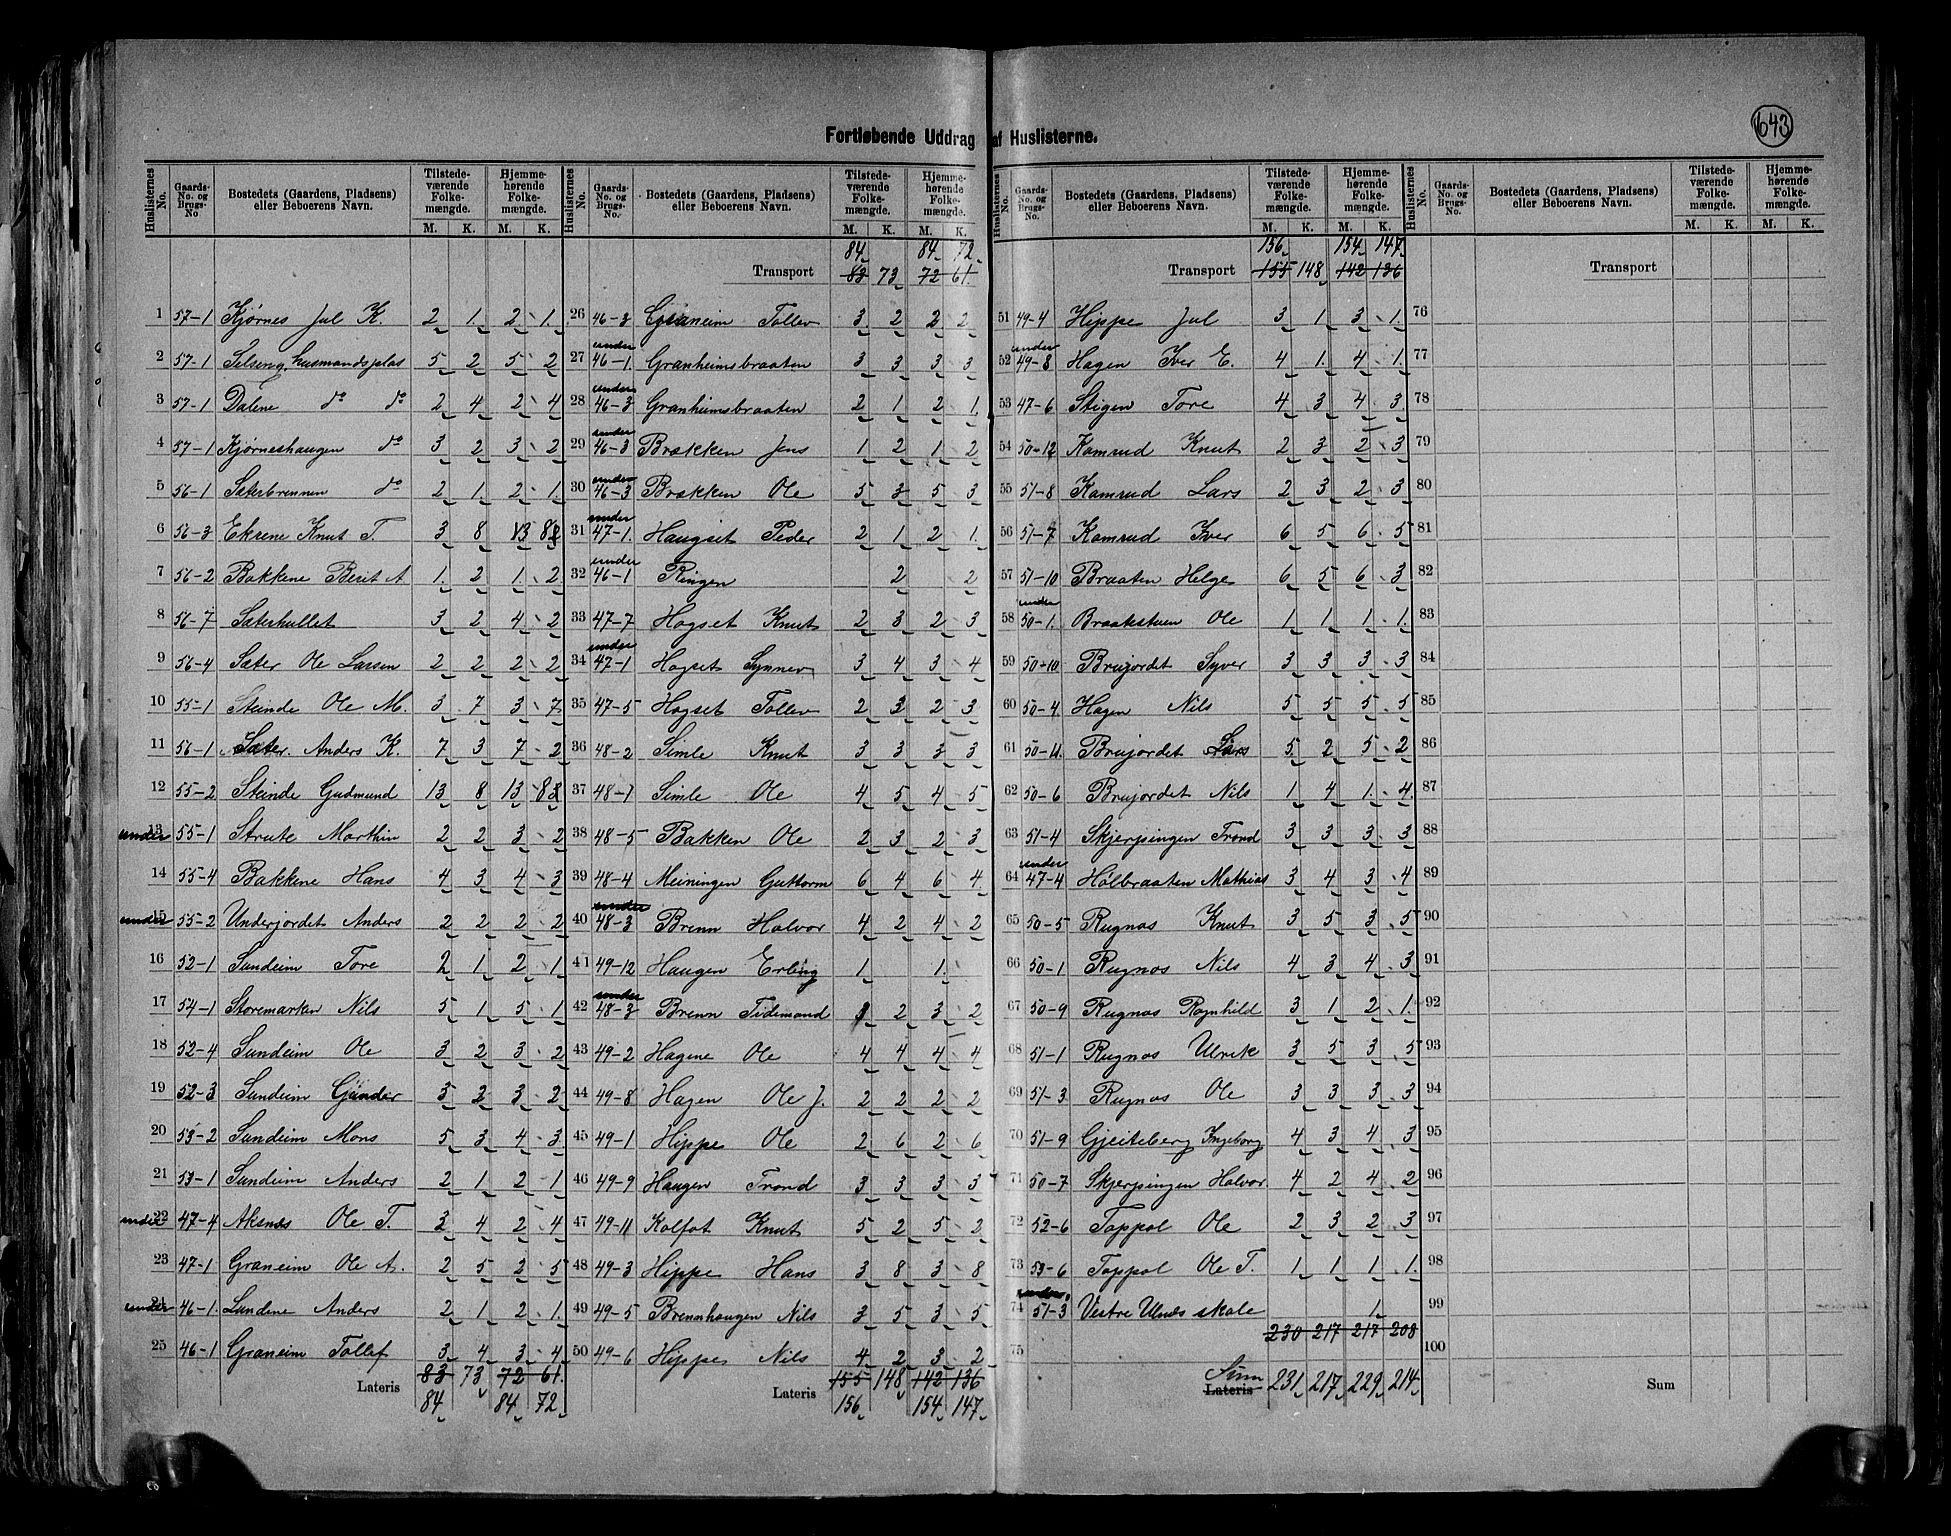 643
Fortløbende Uddrag af Huslisterne.
Huslisternes No. Gaards-No. og Brugs-No Bostedets (Gaardens, Pladsens) eller Beboerens Navn. Tilstedeværende Folkemængde. M. K. Hjemmehørende Folkemængde. M. K.
1 57-1 Kjørnes Jul K. 2 1 2 1
2 57-1 Selseng, husmandsplas 5 2 5 2
3 57-1 Dalene do do 2 4 2 4
4 57-1 Kjørneshaugen do 3 2 3 2
5 56-1 Sæterbrennen do 2 1 2 1
6 56-3 Ekrene Knut T 3 8 3 8
7 56-2 Bakkene Berit A 1 2 1 2
8 56-7 Sæterhullet 3 2 4 2
9 56-4 Sæter Ole Larsen 2 2 2 2
10 55-1 Steinde Ole M. 3 7 3 7
11 56-1 Sæter Anders K. 7 3 7 2
12 55-2 Steinde Gudmund 13 8 13 8
13 under 55-1 Strute Marthin 2 2 3 2
14 55-4 Bakkene Hans 4 3 4 3
15 under 55-2 Underjordet Anders 2 2 2 2
16 52-1 Sundeim Tore 2 1 2 1
17 54-1 Storemarken Nils 5 1 5 1
18 52-4 Sundeim Ole 3 2 3 2
19 52-3 Sundeim Gunder 3 2 3 2
20 53-2 Sundeim Mons 5 3 4 3
21 53-1 Sundeim Anders 2 1 2 1
22 under 47-4 Aksnæs Ole T. 2 4 2 4
23 47-1 Graneim Ole A. 2 5 2 5
24 under 46-1 Lundene Anders 2 1 2 1
25 46-1 Graneim Tollef 3 4 3 4
Lateris 83 73 72 61
84 84 72
Huslisternes No. Gaards-No. og Brugs-No. Bostedets (Gaardens, Pladsens) eller Beboerens Navn. Tilstedeværende Folkemængde. M. K. Hjemmehørende Folkemængde. M. K.
84 84 72
Transport 83 73 72 61
26 46-3 Graneim Tollev 3 2 2 2
27 under 46-1 Granheimsbraaten 3 3 3 3
28 under 46-3 Granheimsbraaten 2 1 2 1
29 under 46-3 Brækken Jens 1 2 1 2
30 under 46-3 Brækken Ole 5 3 5 3
31 under 47-1 Haugset Peder 2 1 2 1
32 under 46-1 Ringen 2 2
33 47-7 Hogset Knut 2 3 2 3
34 under 47-1 Hogset Synnev 3 4 3 4
35 47-5 Hogset Tollev 2 3 2 3
36 48-2 Simle Knut 3 3 3 3
37 48-1 Simle Ole 4 5 4 5
38 48-5 Bakken Ole 2 3 2 3
39 48-4 Meiningen Guttorm 6 4 6 4
40 under 48-3 Brenn Halvor 4 2 4 2
41 49-12 Haugen Erling 1 1
42 under 48-3 Brenn Tidemand 2 3 2
43 49-2 Hagene Ole 4 4 4 4
44 49-8 Hagen Ole J. 2 2 2 2
45 49-1 Hippe Ole 2 6 2 6
46 49-9 Haugen Trond 3 3 3 3
47 49-11 Kolfot Knut 5 2 5 2
48 49-3 Hippe Hans 3 8 3 8
49 49-5 Brennhaugen Nils 3 5 3 5
50 49-6 Hippe Nils 4 2 3 2
Lateris 155 148 142 136
156 154 147
Huslisternes No. Gaards-No. og Brugs-No. Bostedets (Gaardens, Pladsens) eller Beboerens Navn. Tilstedeværende Folkemængde. M. K. Hjemmehørende Folkemængde. M. K.
156 154 147
Transport 155 148 142 136
51 49-4 Hippe Jul 3 1 3 1
52 under 49-8 Hagen Iver E. 4 1 4 1
53 47-6 Stigen Tore 4 3 4 3
54 50-12 Kamrud Knut 2 3 2 3
55 51-8 Kamrud Lars 2 3 2 3
56 51-7 Kamrud Iver 6 5 6 5
57 51-10 Braaten Helge 6 5 6 3
58 under 50-1 Braatestuen Ole 1 1 1 1
59 50-10 Brujordet Syver 3 3 3 3
60 50-4 Hagen Nils 5 5 5 5
61 50-11 Brujordet Lars 5 2 5 2
62 50-6 Brujordet Nils 1 4 1 4
63 51-4 Skjerpingen Trond 3 3 3 3
64 under 47-4 Hølbraaten Mathias 3 4 3 4
65 50-5 Rugnos Knut 3 5 3 5
66 50-1 Rugnos Nils 4 3 4 3
67 50-9 Rugnos Ragnhild 3 1 2 1
68 51-1 Rugnos Ulrik 3 5 3 5
69 51-3 Rugnos Ole 3 3 3 3
70 51-9 Gjeiteberg Ingeborg 4 3 4 3
71 50-7 Skjerpingen Halvor 4 2 4 2
72 52-6 Toppol Ole 2 3 2 3
73 53-6 Toppol Ole T. 1 1 1 1
74 under 51-3 Vestre Ulnes skole 1
75 230 217 217 208
Sum Lateris 231 217 229 214
Huslisternes No. Gaards-No. og Brugs-No. Bostedets (Gaardens, Pladsens) eller Beboerens Navn. Tilstedeværende Folkemængde. M. K. Hjemmehørende Folkemængde. M. K.
Transport
76
77
78
79
80
81
82
83
84
85
86
87
88
89
90
91
92
93
94
95
96
97
98
99
100
Sum